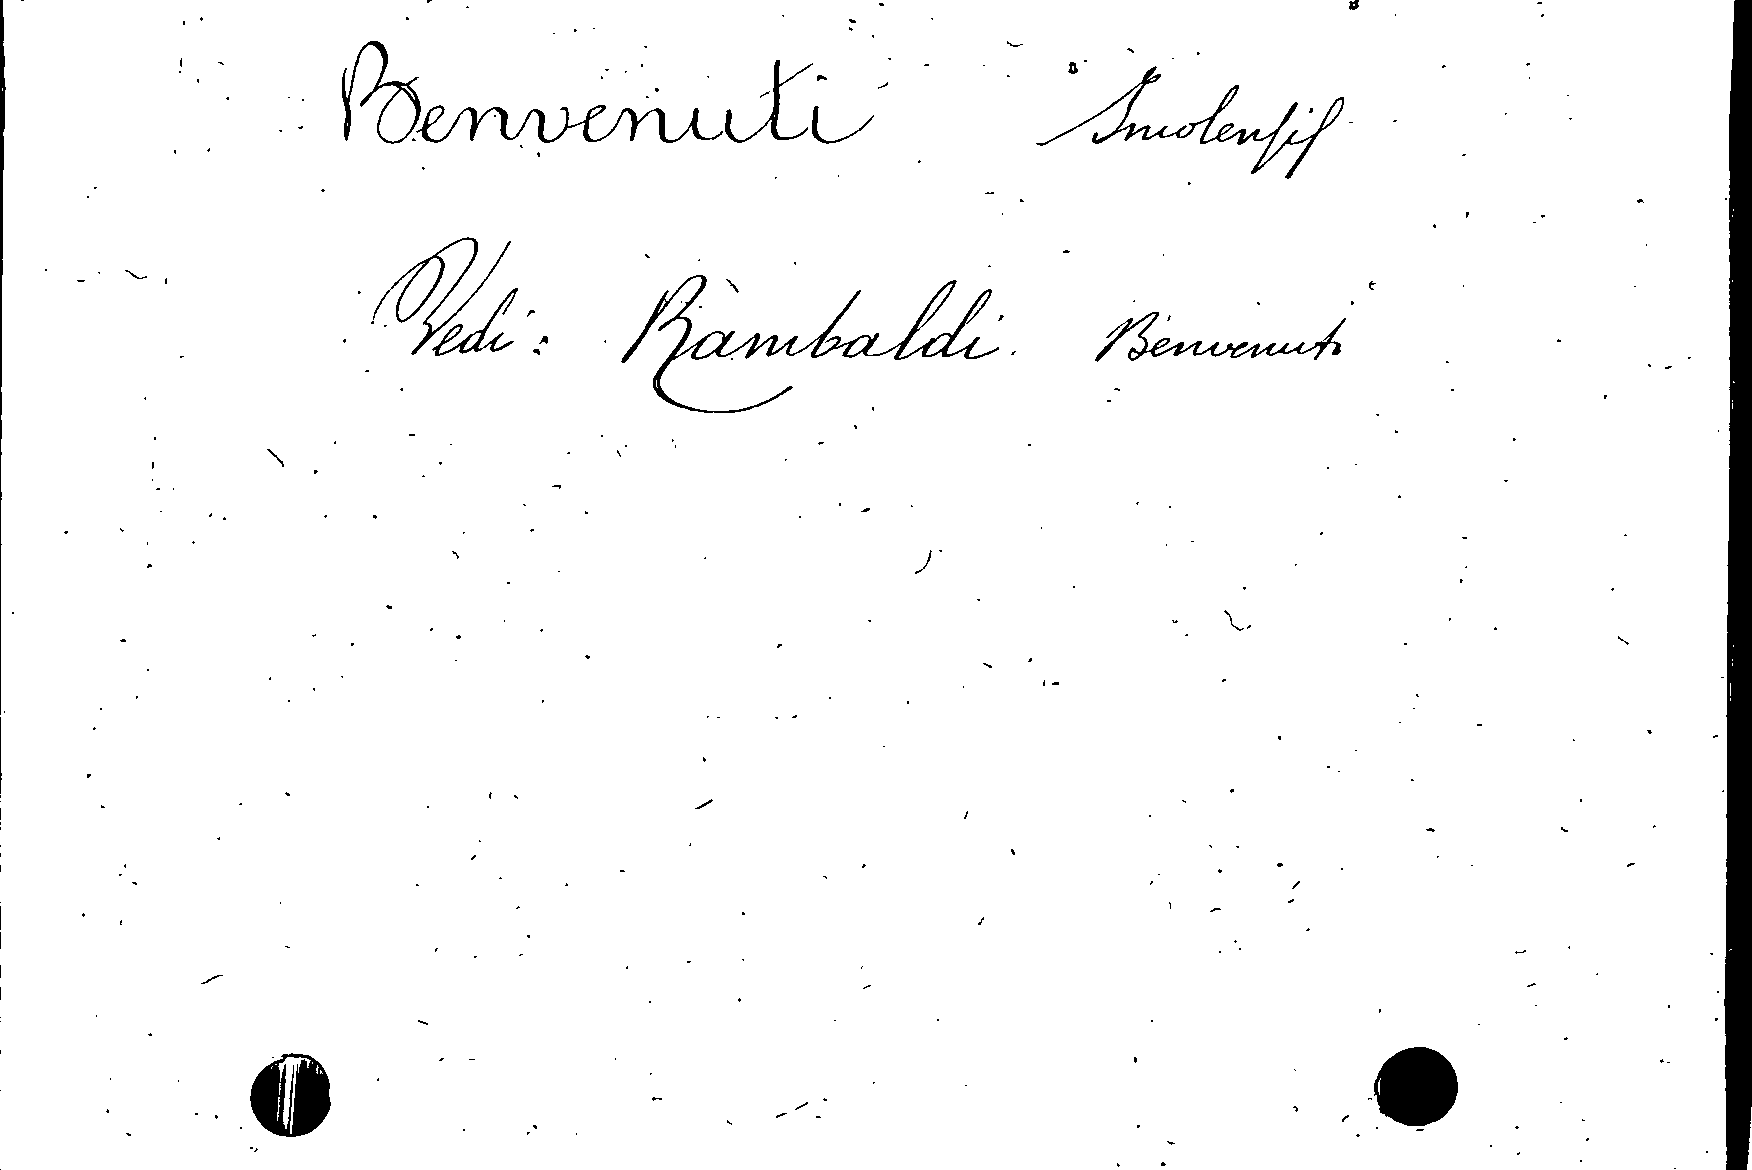 Benvenuti Imolensis
Vedi: Rambaldi Benvenuto